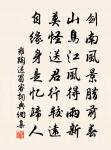 劍南風景臘前春
山鳥江風得雨新
莫怪送君行較遠
自緣身是憶歸人
雍陶送蜀客詞典網集